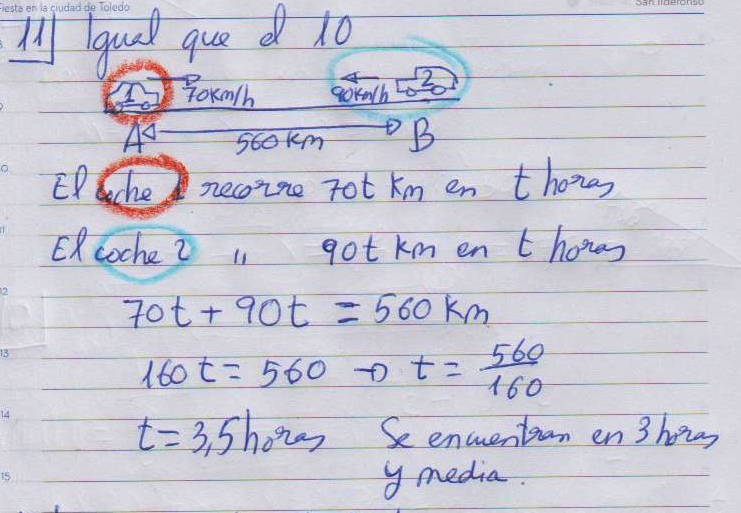 Fiesta en la ciudad de Toledo
San Ildefonso
11 Igual que el 10
1 70km/h 90km/h 2
A 560 km B
El coche 1 recorre 70t km en t horas
El coche 2 " 90t km en t horas
70t + 90t = 560 km
160t = 560 → t = 560/160
t = 3,5 horas Se encuentran en 3 horas
y media.
9
10
11
12
13
14
15